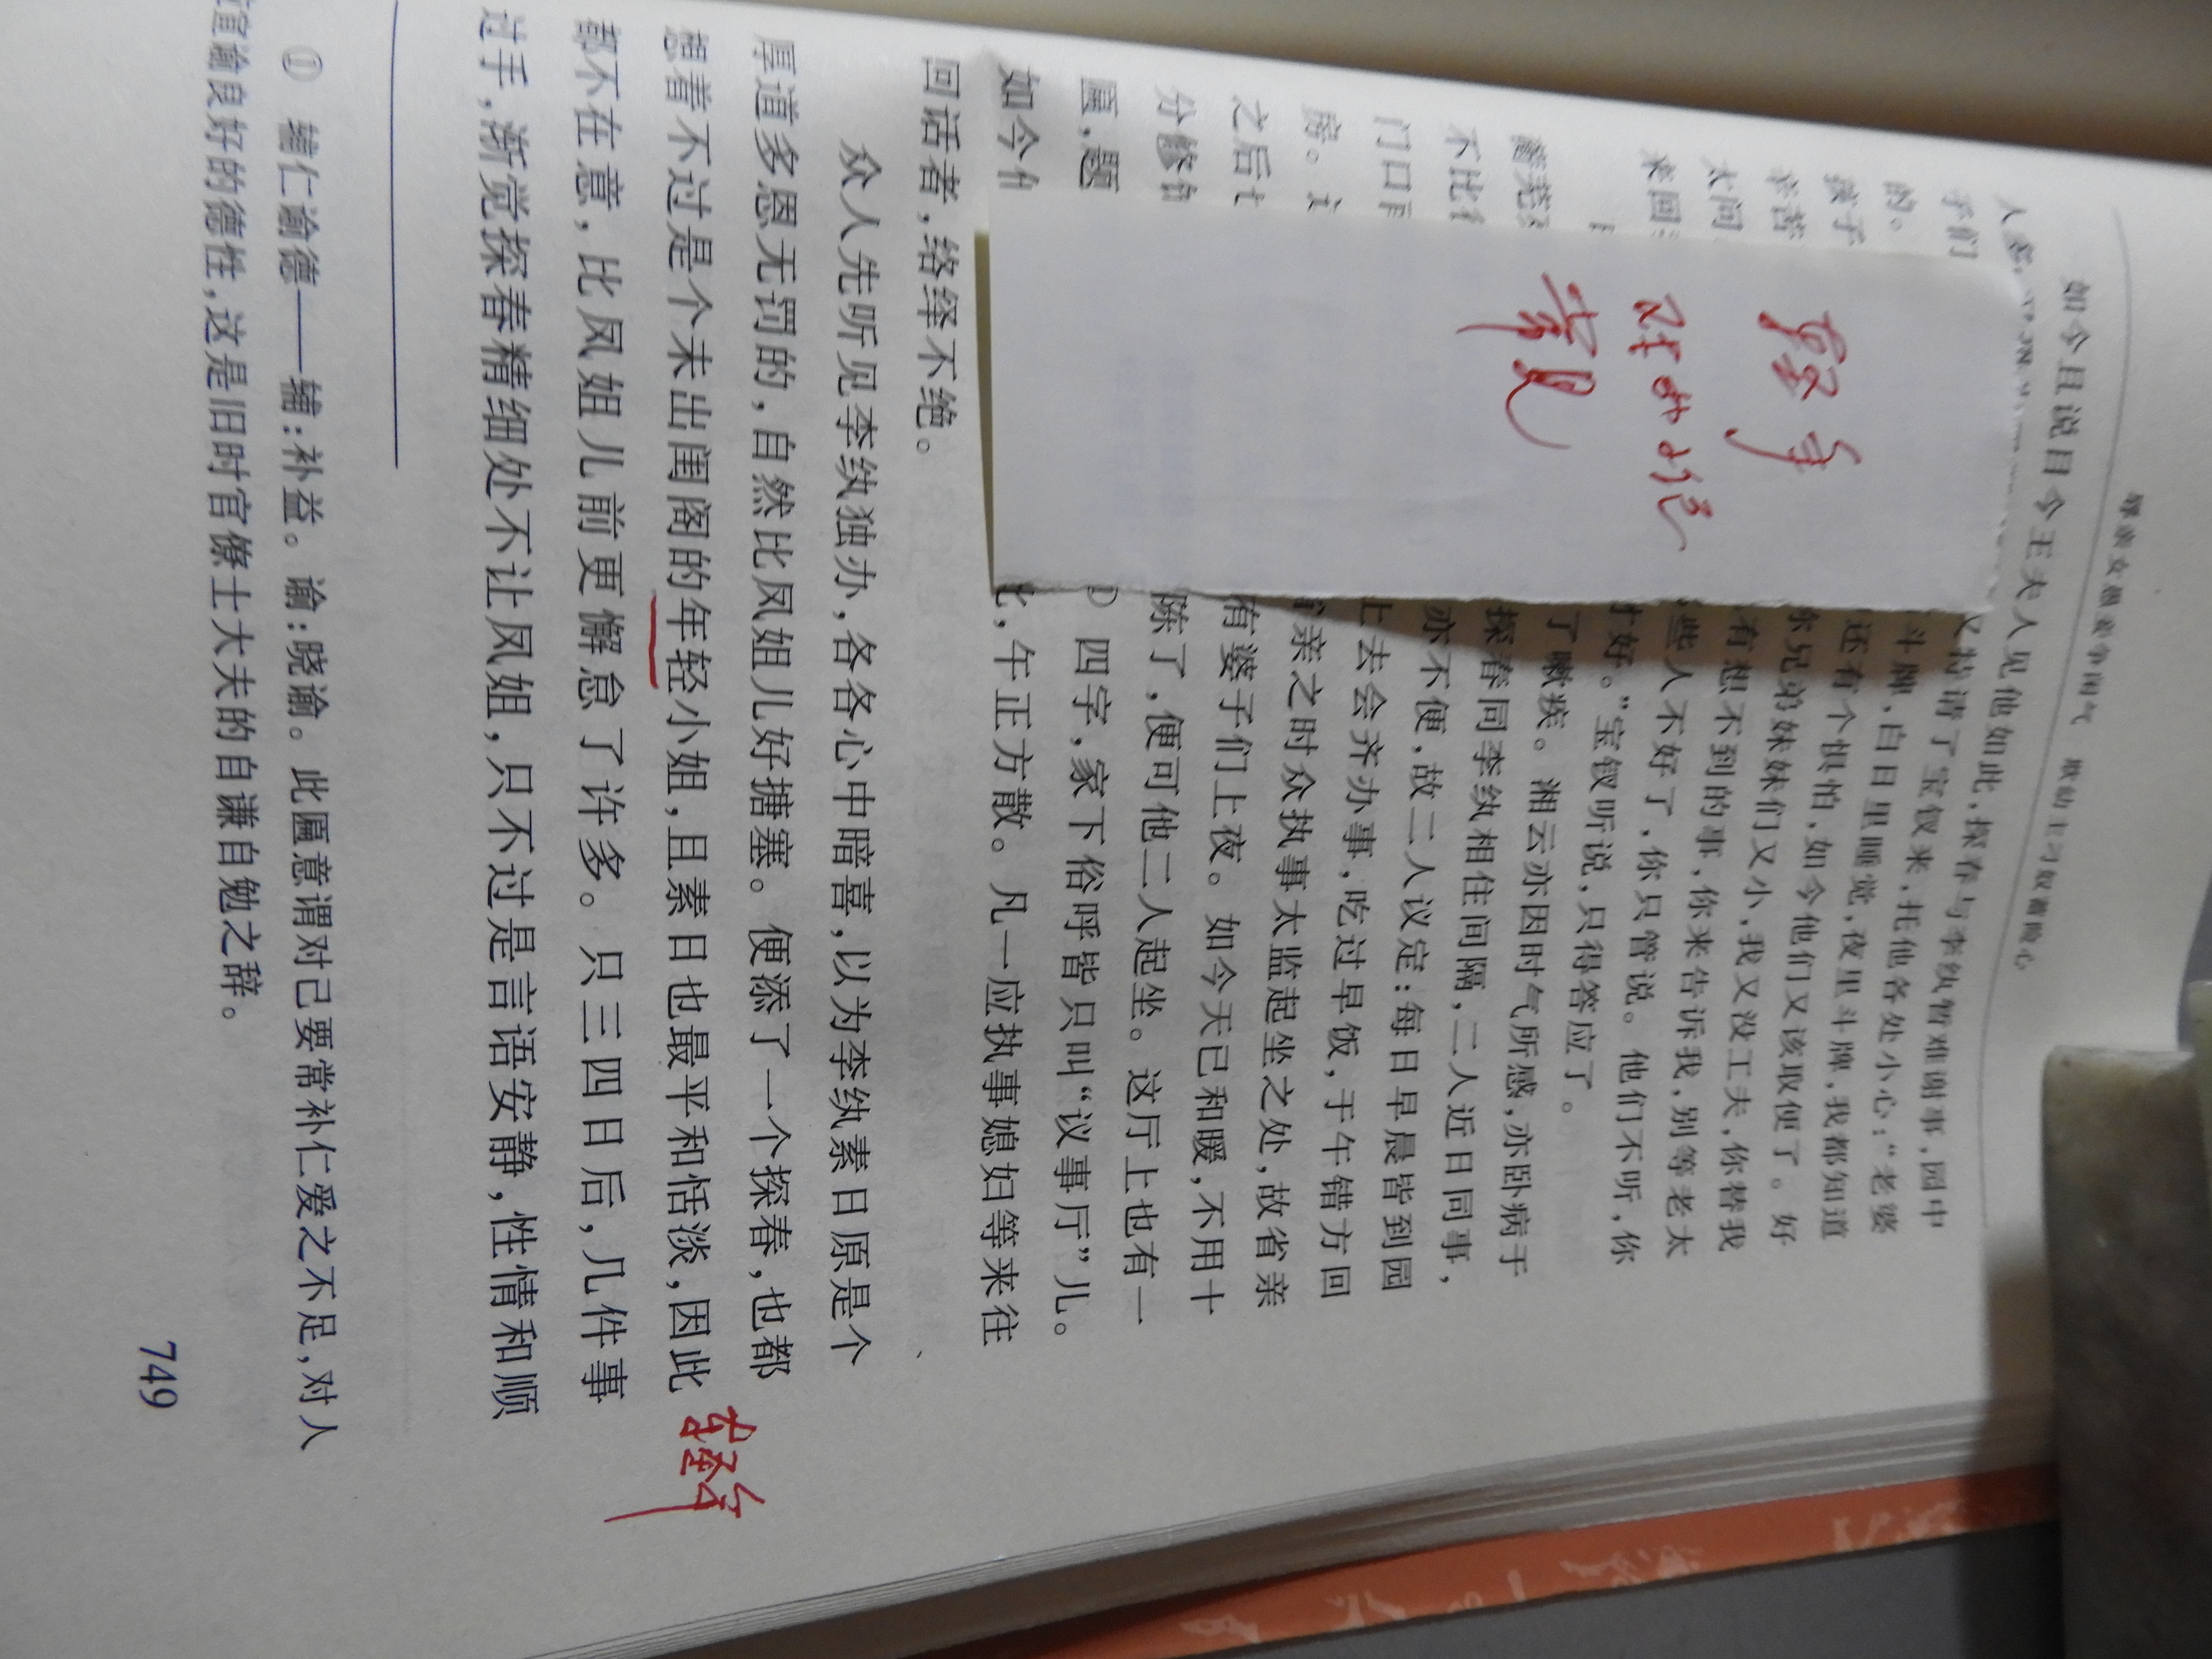 辱亲女愚妾争闲气 欺幼主刁奴蓄险心
如今且说目今王夫人见他如此，探春与李纨暂难谢事，园中
人多，
又特请了宝钗来，托他各处小心：“老婆
子们
斗牌，白日里睡觉，夜里斗牌，我都知道
的。
还有个惧怕，如今他们又该取便了。好
孩子
你兄弟妹妹们又小，我又没工夫，你替我
辛苦
有想不到的事，你来告诉我，别等老太
太问
些人不好了，你只管说。他们不听，你
来回
才好。”宝钗听说，只得答应了。
了嗽疾。湘云亦因时气所感，亦卧病于
蘅芜
探春同李纨相住间隔，二人近日同事，
不比
亦不便，故二人议定：每日早晨皆到园
门口
上去会齐办事，吃过早饭，于午错方回
房。
省亲之时众执事太监起坐之处，故省亲
之后
有婆子们上夜。如今天已和暖，不用十
分修
陈了，便可他二人起坐。这厅上也有一
匾，题
① 四字，家下俗呼皆只叫“议事厅”儿。
如今
，午正方散。凡一应执事媳妇等来往
回话者，络绎不绝。
众人先听见李纨独办，各各心中暗喜，以为李纨素日原是个
厚道多恩无罚的，自然比凤姐儿好搪塞。便添了一个探春，也都
想着不过是个未出闺阁的年轻小姐，且素日也最平和恬淡，因此
都不在意，比凤姐儿前更懈怠了许多。只三四日后，几件事
过手，渐觉探春精细处不让凤姐，只不过是言语安静，性情和顺
① 辅仁谕德——辅：补益。谕：晓谕。此匾意谓对己要常补仁爱之不足，对人
宣谕良好的德性，这是旧时官僚士大夫的自谦自勉之辞。
749